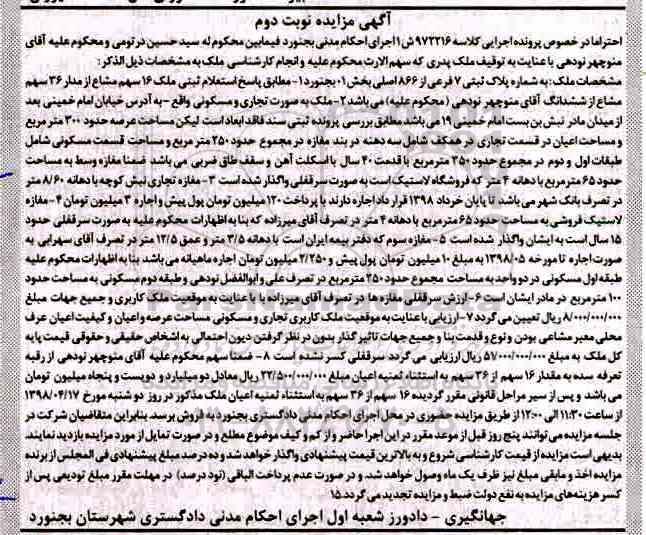 آگهی مزایده نوبت دوم
احتراما در خصوص پرونده اجرایی کلاسه ۹۷۳۲۱۶ ش ۱ اجرای احکام مدنی بجنورد فیمابین محکوم له سید حسین درتومی و محکوم علیه آقای
منوچهر نودهی با عنایت به توقیف ملک پدری که سهم الارث محکوم علیه و انجام کارشناسی ملک به مشخصات ذیل الذکر:
مشخصات ملک: به شماره پلاک ثبتی ۷ فرعی از ۸۶۶ اصلی بخش ۰۱ بجنورد ۱- مطابق پاسخ استعلام ثبتی ملک ۱۶ سهم مشاع از مدار ۳۶ سهم
مشاع از ششدانگ آقای منوچهر نودهی (محکوم علیه) می باشد ۲- ملک به صورت تجاری و مسکونی واقع - به آدرس خیابان امام خمینی بعد
از میدان مادر نبش بن بست امام خمینی ۱۹ می باشد مطابق بررسی پرونده ثبتی سند فاقد ابعاد است لیکن مساحت عرصه حدود ۳۰۰ متر مربع
و مساحت اعیان در قسمت تجاری در همکف شامل سه دهنه در بند مغازه در مجموع حدود ۲۵۰ متر مربع و مساحت قسمت مسکونی شامل
طبقات اول و دوم در مجموع حدود ۳۵۰ مترمربع با قدمت ۴۰ سال با اسکلت آهن و سقف طاق ضربی می باشد ضمنا مغازه وسط به مساحت
حدود ۶۵ مترمربع با دهانه ۴ متر که فروشگاه لاستیک است به صورت سرقفلی واگذار شده است ۳- مغازه تجاری نبش کوچه با دهانه ۸/۶۰ متر
در تصرف بانک شهر می باشد تا پایان خرداد ۱۳۹۸ قرارداد اجاره دارند با پرداخت ۱۲۰ میلیون تومان پول پیش و اجاره ۳ میلیون تومان ۴- مغازه
لاستیک فروشی به مساحت حدود ۶۵ مترمربع با دهانه ۴ متر در تصرف آقای میرزاده که بنا به اظهارات محکوم علیه به صورت سرقفلی حدود
۱۵ سال است به ایشان واگذار شده است ۵- مغازه سوم که دفتر بیمه ایران است با دهانه ۳/۵ متر و عمق ۱۲/۵ متر در تصرف آقای سهرابی به
صورت اجاره تا مورخه ۱۳۹۸/۰۵ به مبلغ ۱۰ میلیون تومان پول پیش و ۲/۲۵۰ میلیون تومان اجاره ماهیانه می باشد بنا به اظهارات محکوم علیه
طبقه اول مسکونی در دو واحد به مساحت مجموع حدود ۲۵۰ مترمربع در تصرف علی و ابوالفضل نودهی و طبقه دوم مسکونی به مساحت حدود
۱۰۰ مترمربع در مادر ایشان است ۶- ارزش سرقفلی مغازه ها در تصرف آقای میرزاده با با عنایت به موقعیت ملک کاربری و جمیع جهات مبلغ
۸/۰۰۰/۰۰۰/۰۰۰ ریال تعیین می گردد ۷- ارزیابی با عنایت به موقعیت ملک کاربری تجاری و مسکونی مساحت عرصه واعیان و کیفیت اعیان عرف
محلی معبر مشاعی بودن و نوع و قدمت بنا و جمیع جهات تاثیر گذار بدون در نظر گرفتن دیون احتمالی به اشخاص حقیقی و حقوقی قیمت پایه
کل ملک به مبلغ ۵۷/۰۰۰/۰۰۰/۰۰۰ ریال ارزیابی می گردد سرقفلی کسر نشده است ۸- ضمنا سهم محکوم علیه آقای منوچهر نودهی از رقبه
تعرفه سده به مقدار ۱۶ سهم از ۳۶ سهم به استثناء ثمنیه اعیان مبلغ ۲۲/۵۰۰/۰۰۰/۰۰۰ ریال معادل دو میلیارد و دویست و پنجاه میلیون تومان
می باشد و پس از سیر مراحل قانونی مقرر گردیده ۱۶ سهم از ۳۶ سهم به استثناء ثمنیه اعیان ملک مذکور در روز دو شنبه مورخ ۱۳۹۸/۰۴/۱۷
از ساعت ۱۱:۳۰ الی ۱۲:۰۰ از طریق مزایده حضوری در محل اجرای احکام مدنی دادگستری بجنورد به فروش برسد. بنابراین متقاضیان شرکت در
جلسه مزایده می توانند پنج روز قبل از موعد مقرر در این اجرا حاضر و از کم و کیف موضوع مطلع و در صورت تمایل از مورد مزایده بازدید نمایند.
بدیهی است مزایده از قیمت کارشناسی شروع و به بالاترین قیمت پیشنهادی واگذار خواهد شد و ده درصد مبلغ پیشنهادی فی المجلس از برنده
مزایده اخذ و مابقی مبلغ نیز ظرف یک ماه وصول خواهد شد. و در صورت عدم پرداخت الباقی (نود درصد) در مهلت مقرر مبلغ تودیعی پس از
کسر هزینه های مزایده به نفع دولت ضبط و مزایده تجدید می گردد. ۱۵
جهانگیری - دادورز شعبه اول اجرای احکام مدنی دادگستری شهرستان بجنورد